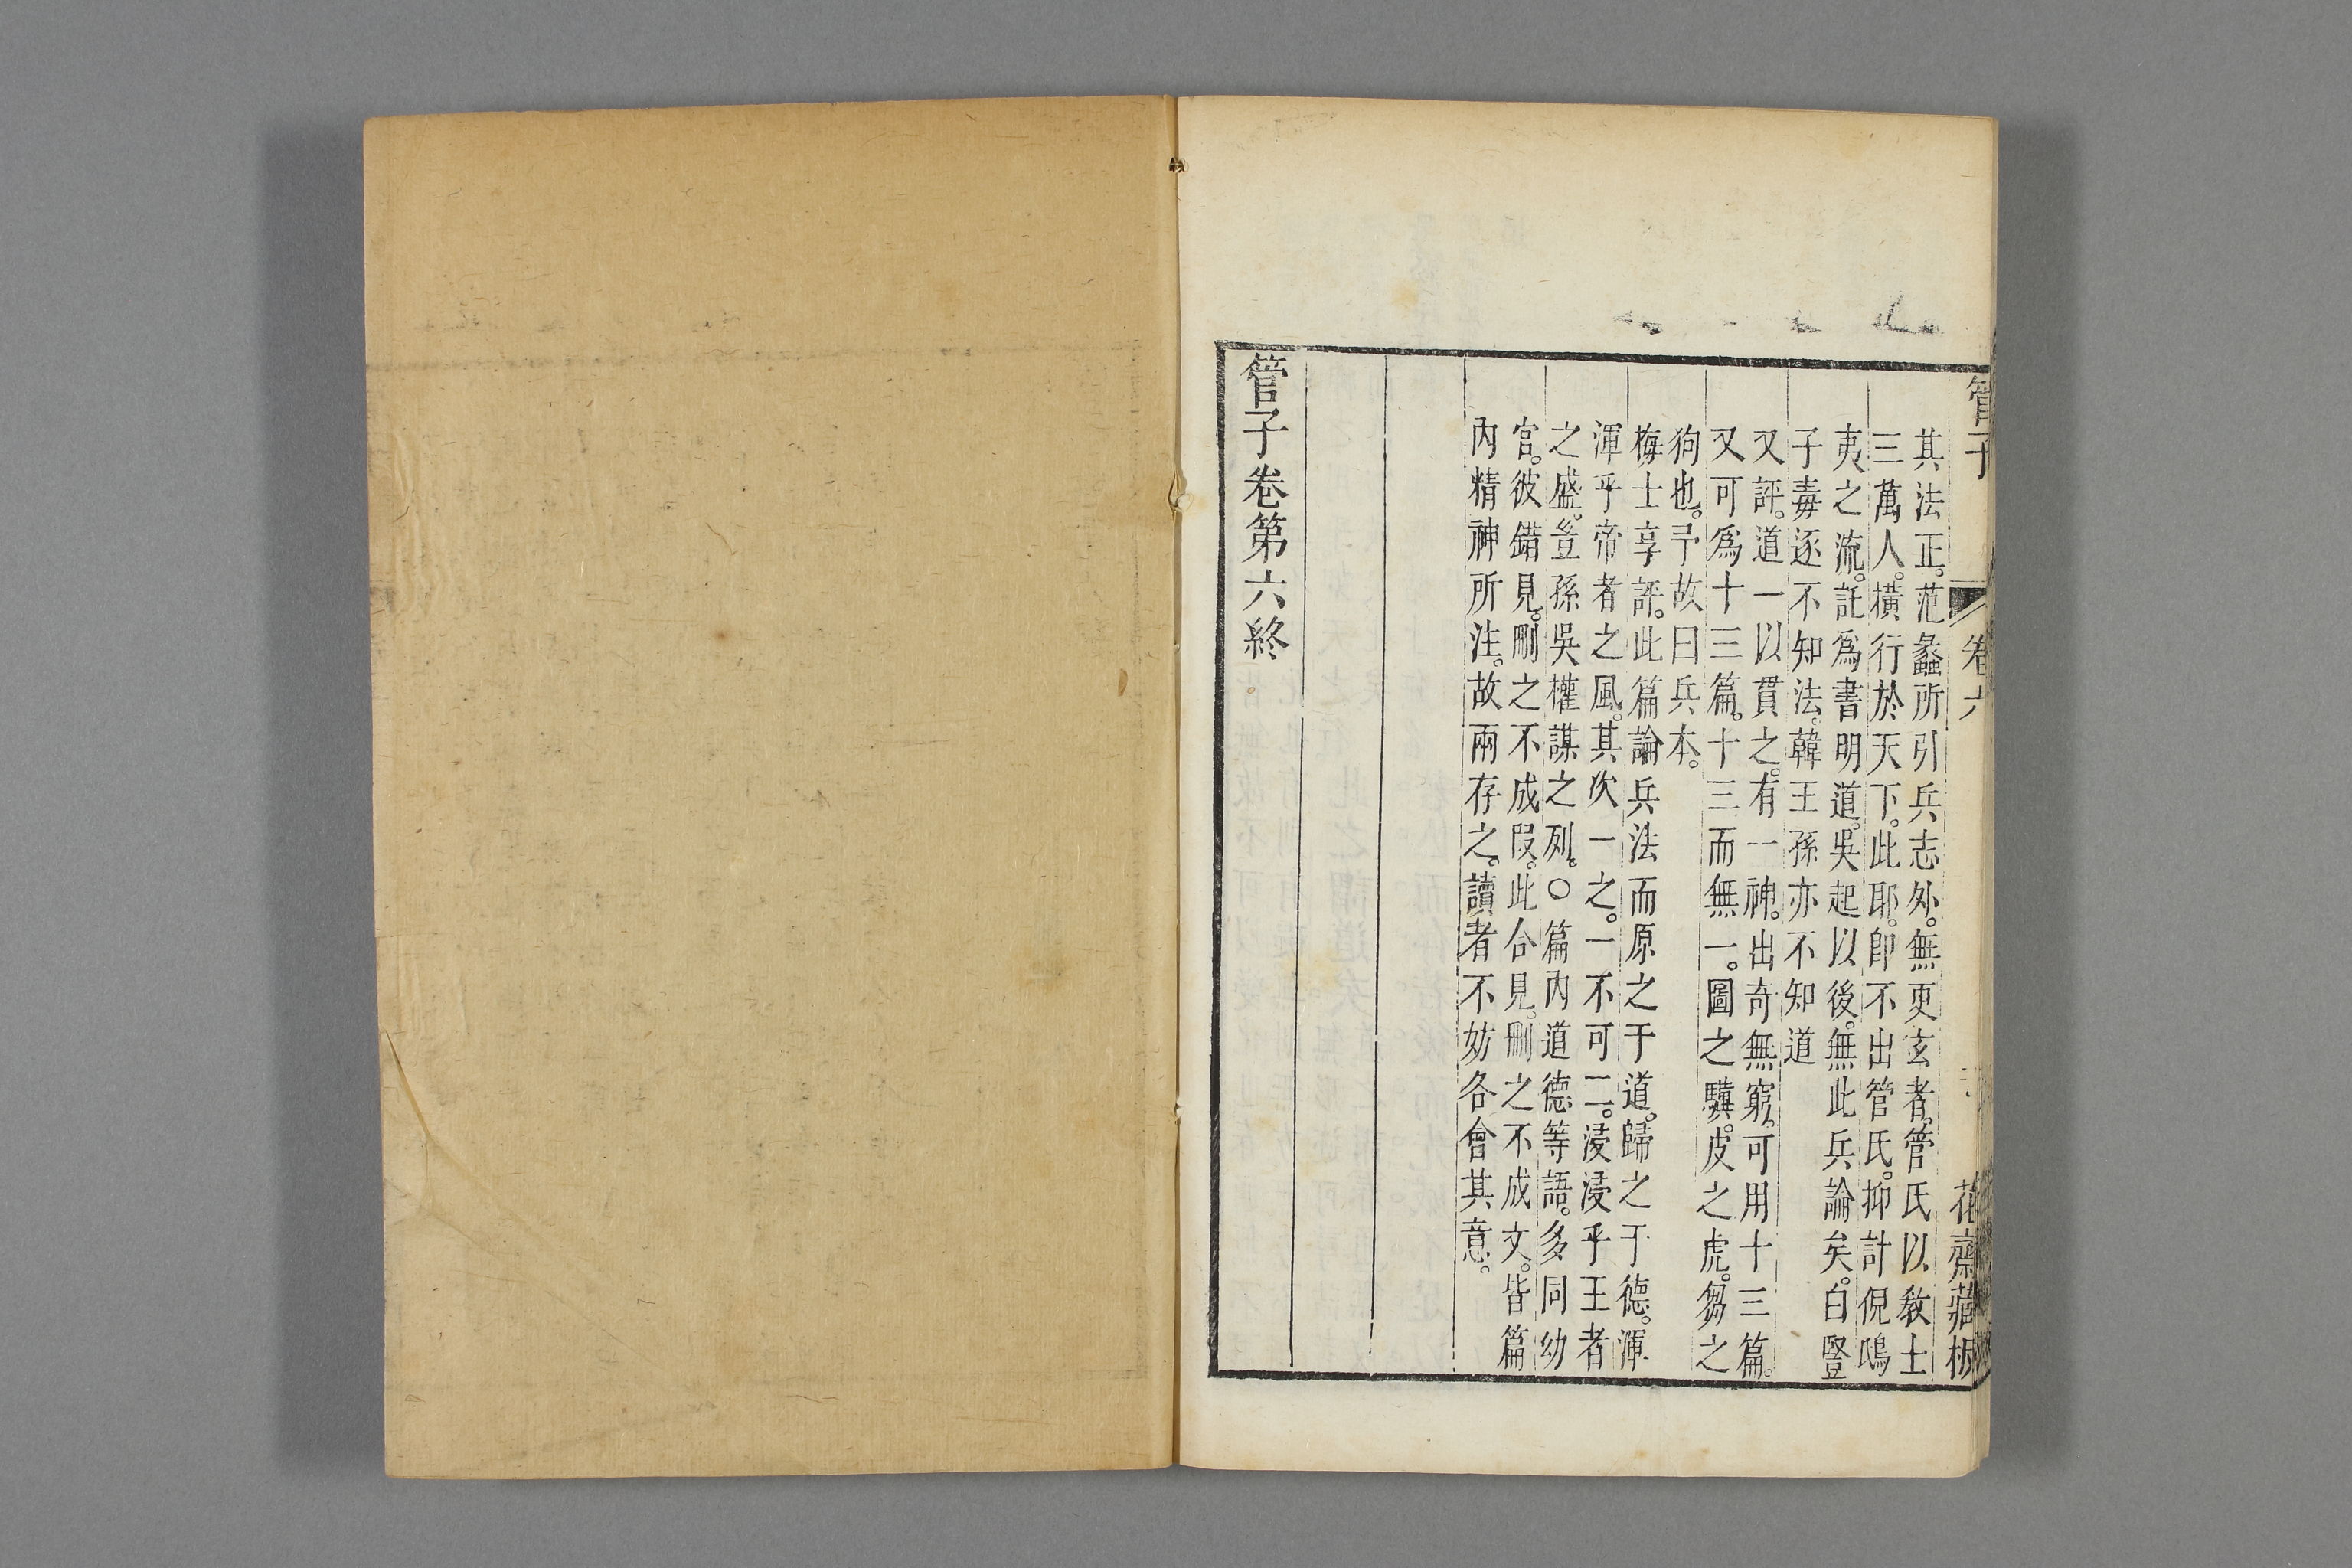 管子 卷六 花齋藏板
其法正。范蠡所引兵志外。無更玄者。管氏以教士
三萬人。橫行於天下。此耶。卽不出管氏。抑計倪鴟
夷之流。託爲書明道。吳起以後。無此兵論矣。白豎
子毒逐不知法。韓王孫亦不知道
又評。道一以貫之。有一神。出奇無窮。可用十三篇。
又可爲十三篇。十三而無一。圖之驥。皮之虎。芻之
狗也。予故曰兵本。
梅士享評。此篇論兵法而原之于道。歸之于德。渾
渾乎帝者之風。其次一之。一不可二。浸浸乎王者
之盛。豈孫吳權謀之列。○篇內道德等語。多同幼
官。彼錯見。刪之不成段。此合見。刪之不成文。皆篇
內精神所注。故兩存之。讀者不妨各會其意。
管子卷第六終